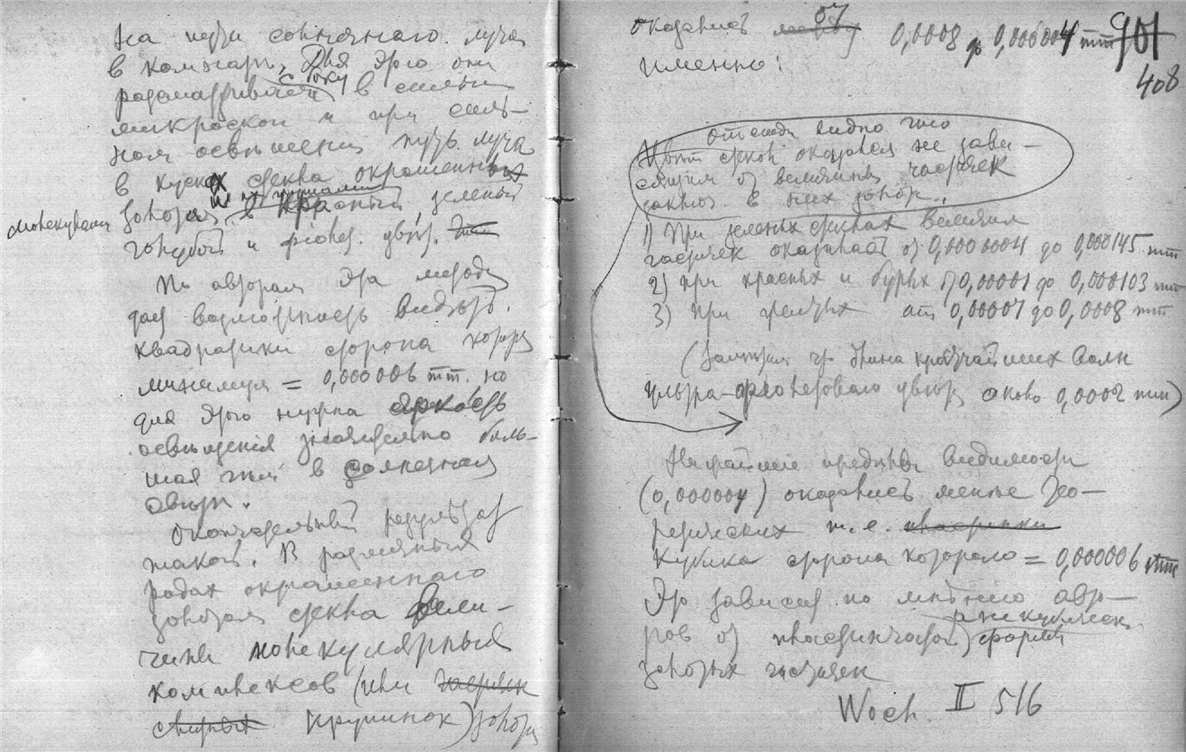 на пути солнечнаго луча
в комнате. Для этого они
рассматривали в сильн
микроскоп и при силь-
ном освещении
в кусках стекла окрашенных
золотом в красный зеленый
голубой и фіолет. цвет.
молекулами
По авторам эта метода
дает возможность видеть
квадратики сторона котор
минимум = 0,000006 mm. но
для этого нужна яркость
освещения значительно боль-
шая чем в солнечном
свете.
Окончательный результат
таков. В различных
родах окрашеннаго
золотом стекла вели-
чина молекулярных
комплексов (или частичек
крупинок) золота
оказалась от 0,0008 до 0,000004 mm
именно:
401
408
Отсюда видно что
Цвет стекол оказался не зави-
сящим от величины частичек
заключ. в них золот.
1) При зеленых стеклах величина
частичек оказывает от 0,0000004 до 0,000145 mm
2) при красных и бурых от 0,00001 до 0,000103 mm
3) При от 0,00007 до 0,0008 mm
(Заметим что длина кратчайших волн
ультра-фіолетоваго цвета около 0,0002 mm)
предел видимости
(0,000004) оказались менее тео-
ретических т.е.
Кубика сторона котораго = 0,000006 mm
Это зависит по мнению авто-
ров от пластинчатой а не кубическ
формы
золотых частичек
Woch. II 516